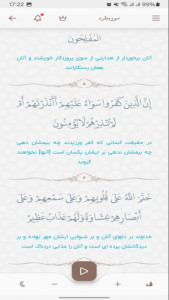 17:22
سوره بقره
الْمُفْلِحُونَ
آنان برخوردار از هدایتی از سوی پروردگار خویشند و آنان
همان رستگارانند
إِنَّ الَّذِينَ كَفَرُوا سَوَاءٌ عَلَيْهِمْ أَأَنْذَرْتَهُمْ أَمْ
لَمْ تُنْذِرْهُمْ لَا يُؤْمِنُونَ
در حقیقت کسانی که کفر ورزیدند چه بیمشان دهی
چه بیمشان ندهی بر ایشان یکسان است [آنها] نخواهند
گروید
خَتَمَ اللَّهُ عَلَى قُلُوبِهِمْ وَعَلَى سَمْعِهِمْ وَعَلَى
أَبْصَارِهِمْ غِشَاوَةٌ وَلَهُمْ عَذَابٌ عَظِيمٌ
خداوند بر دلهای آنان و بر شنوایی ایشان مهر نهاده و بر
دیدگانشان پرده ای است و آنان را عذابی دردناک است
ف